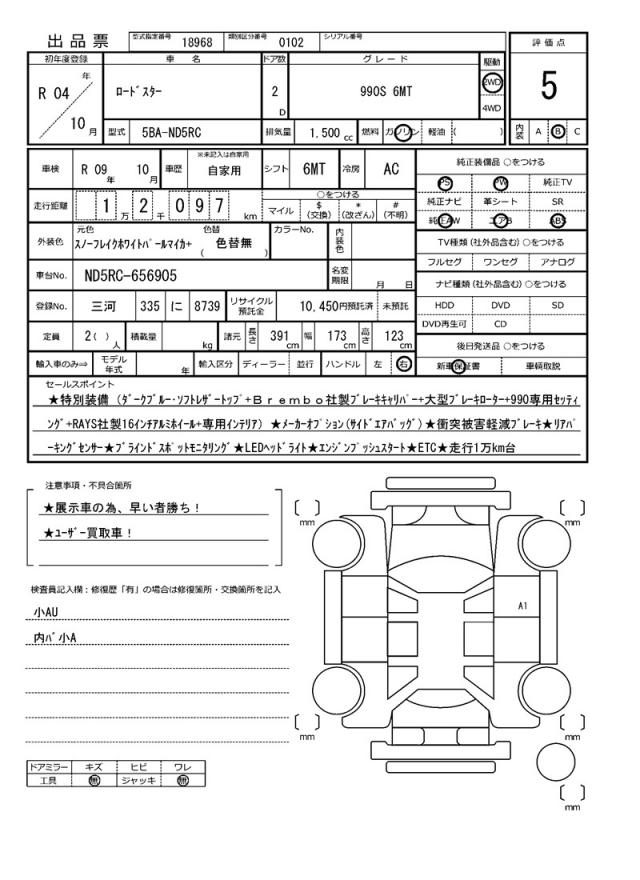 出品票 型式指定番号 18968 類別区分番号 0102 シリアル番号
評価点
5
内装 A B C
初年度登録 車名 ドア数 グレード 駆動
R 04 年 10 月
ロードスター 2 D 990S 6MT 2WD 4WD
型式 5BA-ND5RC 排気量 1.500 cc 燃料 ガソリン 軽油 ( )
車検 R 09 年 10 月 車歴 ※未記入は自家用 自家用 シフト 6MT 冷房 AC
走行距離 1 万 2 千 0 9 7 km
○をつける
マイル $ (交換) * (改ざん) # (不明)
外装色 元色 スノーフレイクホワイトパールマイカ+ 色替 ( 色替無 ) カラーNo. 内装色
車台No. ND5RC-656905 名変期限 月 日
登録No. 三河 335 に 8739 リサイクル預託金 10,450円預託済 未預託
定員 2( ) 人 積載量 kg 諸元 長さ 391 cm 幅 173 cm 高さ 123 cm
輸入車のみ⇒ モデル年式 年 輸入区分 ディーラー 並行 ハンドル 左 右
純正装備品 ○をつける
PS PW 純正TV
純正ナビ 革シート SR
純正AW エアB ABS
TV種類 (社外品含む) ○をつける
フルセグ ワンセグ アナログ
ナビ種類 (社外品含む) ○をつける
HDD DVD SD
DVD再生可 CD
後日発送品 ○をつける
新車保証書 車輌取説
セールスポイント
★特別装備 (ダークブルー・ソフトレザートップ+Brembo社製ブレーキキャリパー+大型ブレーキローター+990専用セッティ
ング+RAYS社製16インチアルミホイール+専用インテリア) ★メーカーオプション(サイドエアバッグ) ★衝突被害軽減ブレーキ★リアパ
ーキングセンサー★ブラインドスポットモニタリング★LEDヘッドライト★エンジンプッシュスタート★ETC★走行1万km台
注意事項・不具合箇所
★展示車の為、早い者勝ち!
★ユーザー買取車!
検査員記入欄:修復歴「有」の場合は修復箇所・交換箇所を記入
小AU
内パ小A
ドアミラー キズ ヒビ ワレ
工具 無 ジャッキ 無
mm
mm
A1
mm
mm
mm